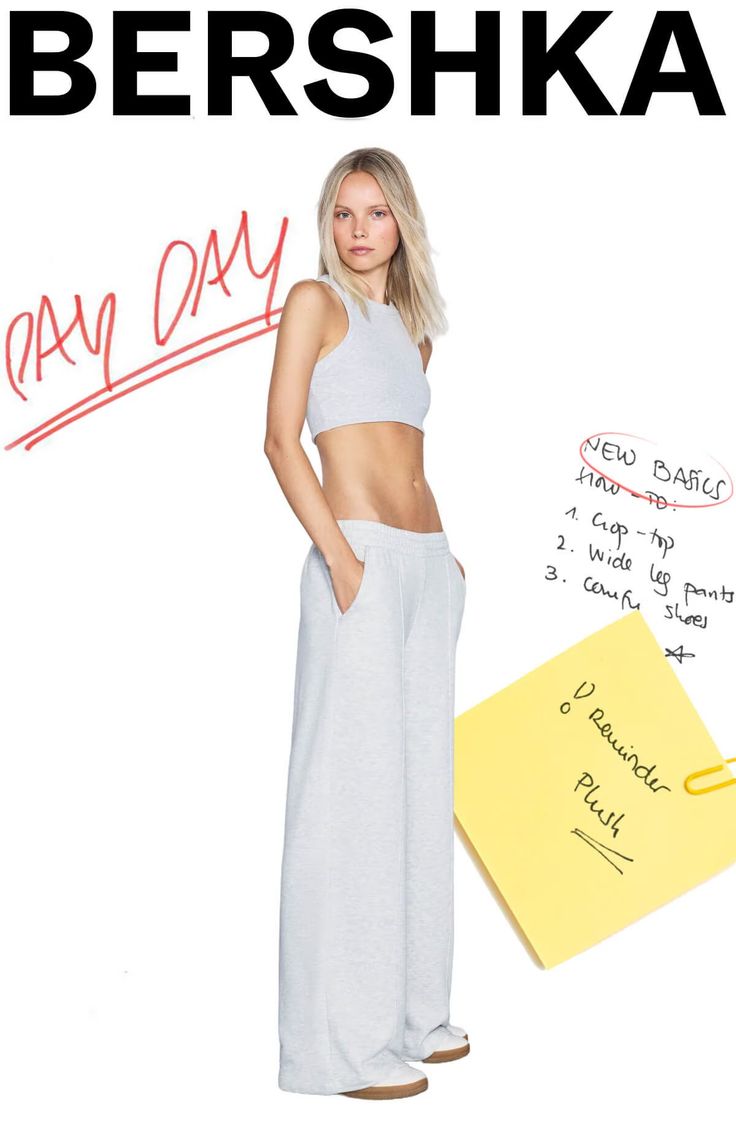 BERSHKA
PAY DAY
NEW BASICS
HOW-TO:
1. Crop-top
2. Wide leg pants
3. Comfy shoes
! Reminder
Plush